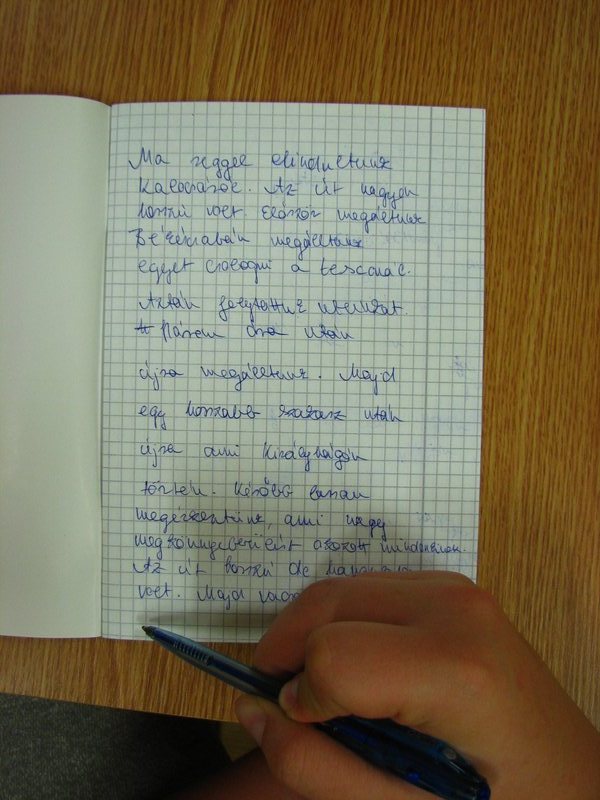 Ma reggel elindultunk
Kalocsáról. Az út nagyon
hosszú volt. Először megálltunk
Békéscsabán megálltunk
egyet csologni a Tescónál.
Aztán folytattuk utunkat.
Három óra után
újra megálltunk. Majd
egy hosszabb szakasz után
újra ami Királyhágón
történt. Később lassan
megérkeztünk, ami nagy
megkönnyebbülést okozott mindenkinek.
Az út hosszú de
volt. Majd